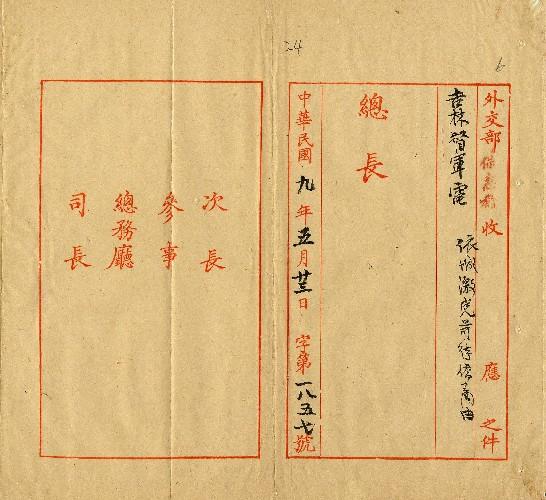 24
6
外交部 收 應 之件
吉林督軍電
總長
中華民國九年五月廿三日 字第一八五七號
次長
參事
總務廳
司長